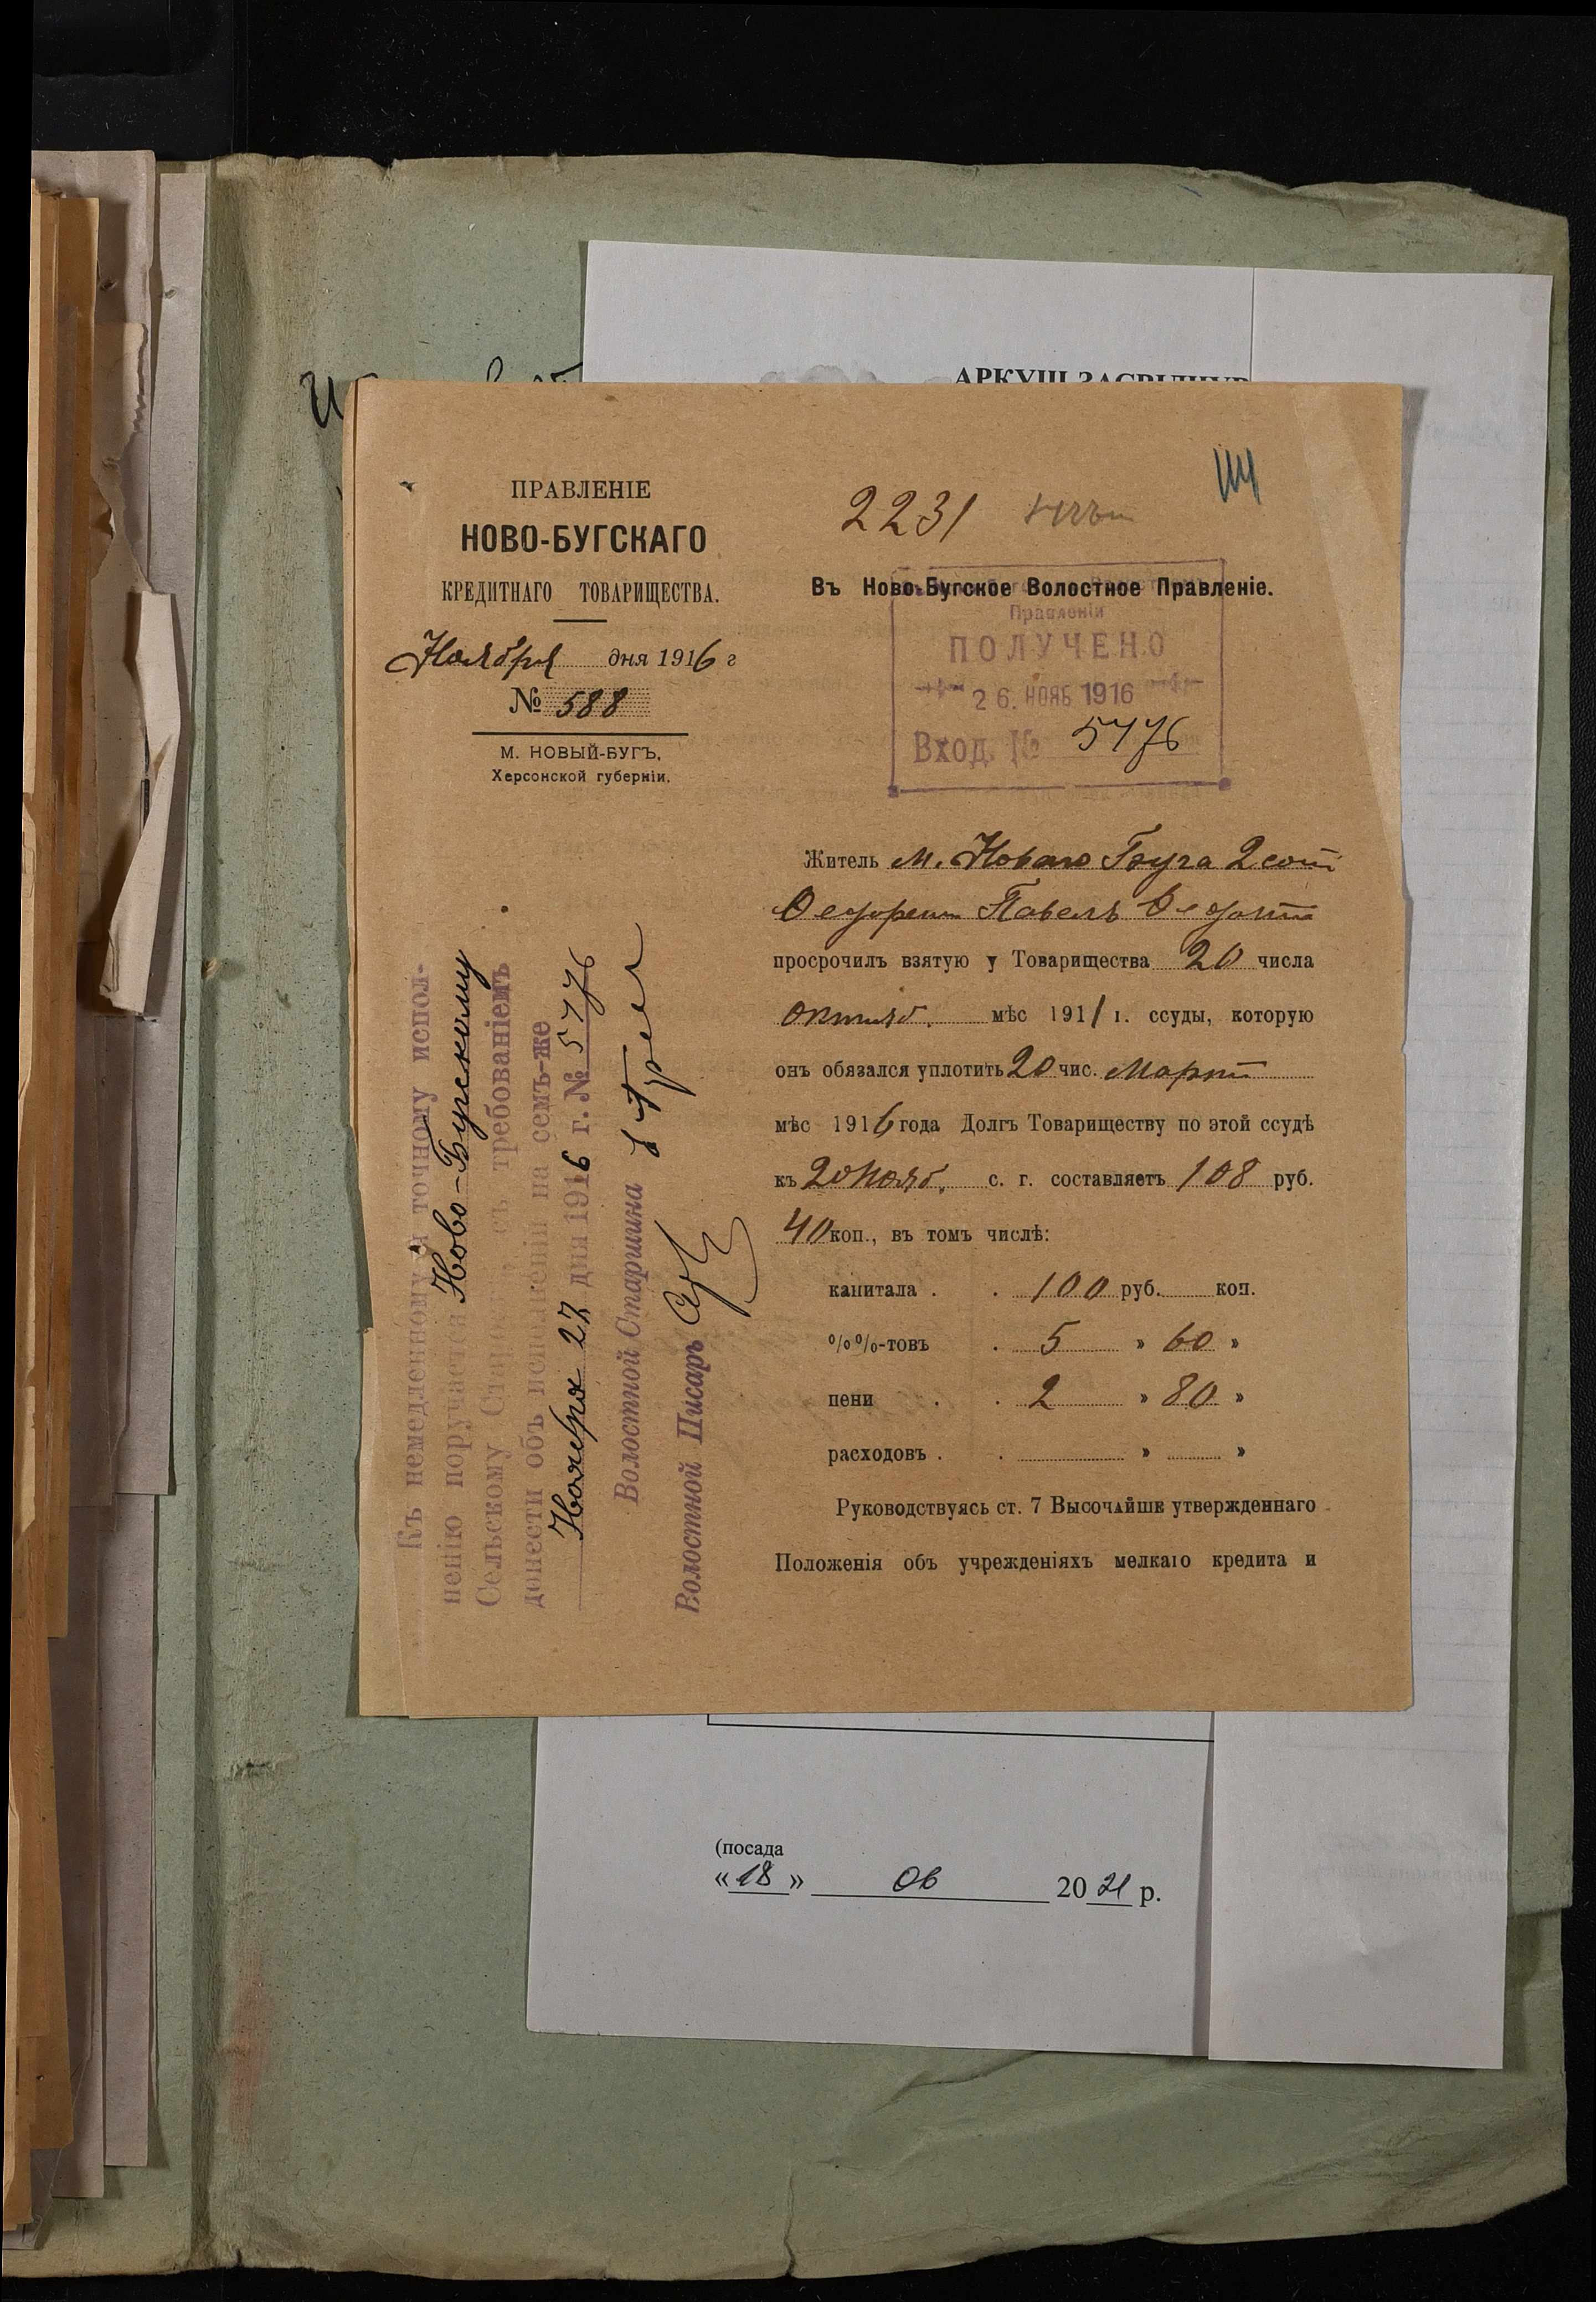 АРКУШ ЗАСВІДЧУВ
ПРАВЛЕНІЕ
НОВО-БУГСКАГО
КРЕДИТНАГО ТОВАРИЩЕСТВА.
Ноября дня 1916 г
№ 588
М. НОВЫЙ-БУГЪ,
Херсонской губерніи.
2231
Въ Ново-Бугское Волостное Правленіе.
Правленіи
ПОЛУЧЕНО
26. НОЯБ 1916
Вход. № 5776
Житель м. Новаго Буга 2 сот
Павелъ
просрочилъ взятую у Товарищества 20 числа
октяб. мѣс 1911 г. ссуды, которую
онъ обязался уплотить 20 чис. Март
мѣс 1916 года Долгъ Товариществу по этой ссудѣ
къ 20 Нояб. с. г. составляетъ 108 руб.
40 коп., въ томъ числѣ:
капитала . . 100 руб. коп.
%%-товъ . 5 » 60 »
пени . . 2 » 80 »
расходовъ . . » »
Руководствуясь ст. 7 Высочайше утвержденнаго
Положенія объ учрежденіяхъ мелкаго кредита и
Къ немедленному и точному испол-
ненію поручается Ново-Бугскому
Сельскому съ требованіемъ
донести объ исполненіи на семъ-же
Ноября 27 дня 1916 г. № 5776
Волостной Старшина
Волостной Писарь
(посада
«18» 06 2021 р.